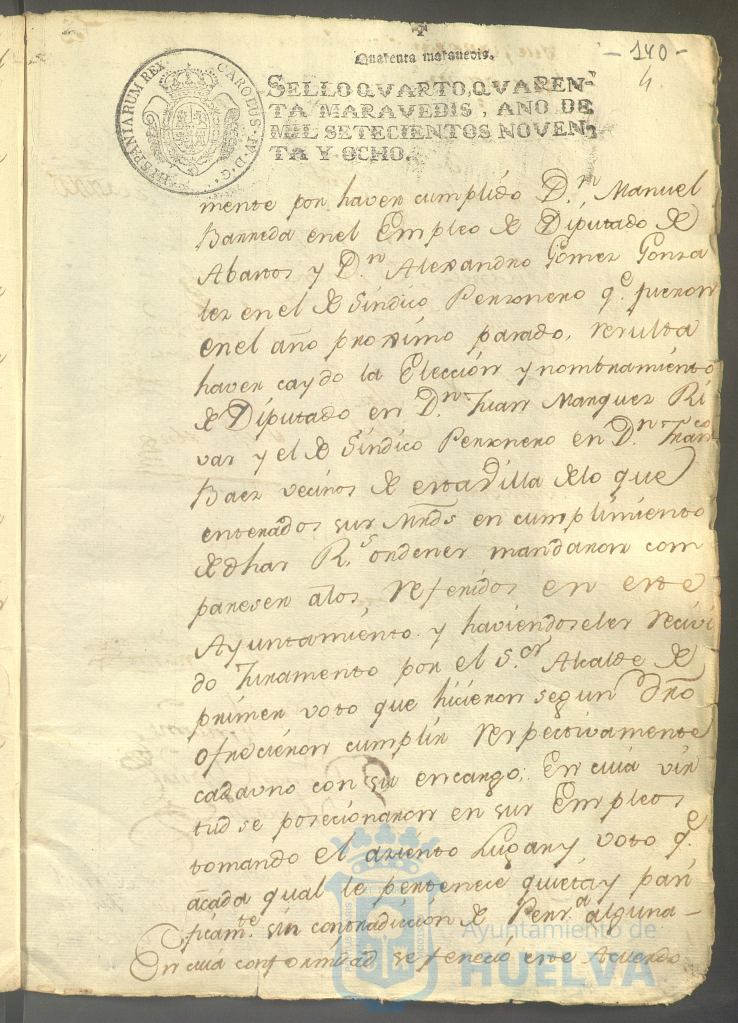 - 140 -
4.
Quarenta maravedis.
HISPANIARUM REX. CAROLUS. IV. D. G.
SELLO QVARTO, QVAREN-
TA MARAVEDIS, ANO DE
MIL SETECIENTOS NOVEN-
TA Y OCHO.
mente por haver cumplido D.n Manuel
Barreda en el Empleo de Diputado de
Abastos y D.n Alexandro Gomez Gonza
lez en el de Sindico Personero q.e fueron
en el año proximo pasado, resulta
haver caydo la Elección y nombramiento
de Diputado en D.n Juan Marquez Ri
vas y el de Sindico Personero en D.n Fran.co
Baez vecinos de esta Villa de lo que
enterados sus Mrds en cumplimiento
de dhas R.s ordenes mandaron com
paresen a los referidos en este
Ayuntamiento y haviendoseles recivi
do Juramento por el S.or Alcalde de
primer voto que hicieron segun dro
ofrecieron cumplir respectivamente
cada uno con su encargo; En cuia vir
tud se posecionaron en sus Empleos
tomando el asiento Lugar y voto q.e
a cada qual le pertenece quieta y pasi
ficam.te sin contradiccion de Pers.a alguna -
En cuia conformidad se feneció este Acuerdo
Ayuntamiento de
HUELVA